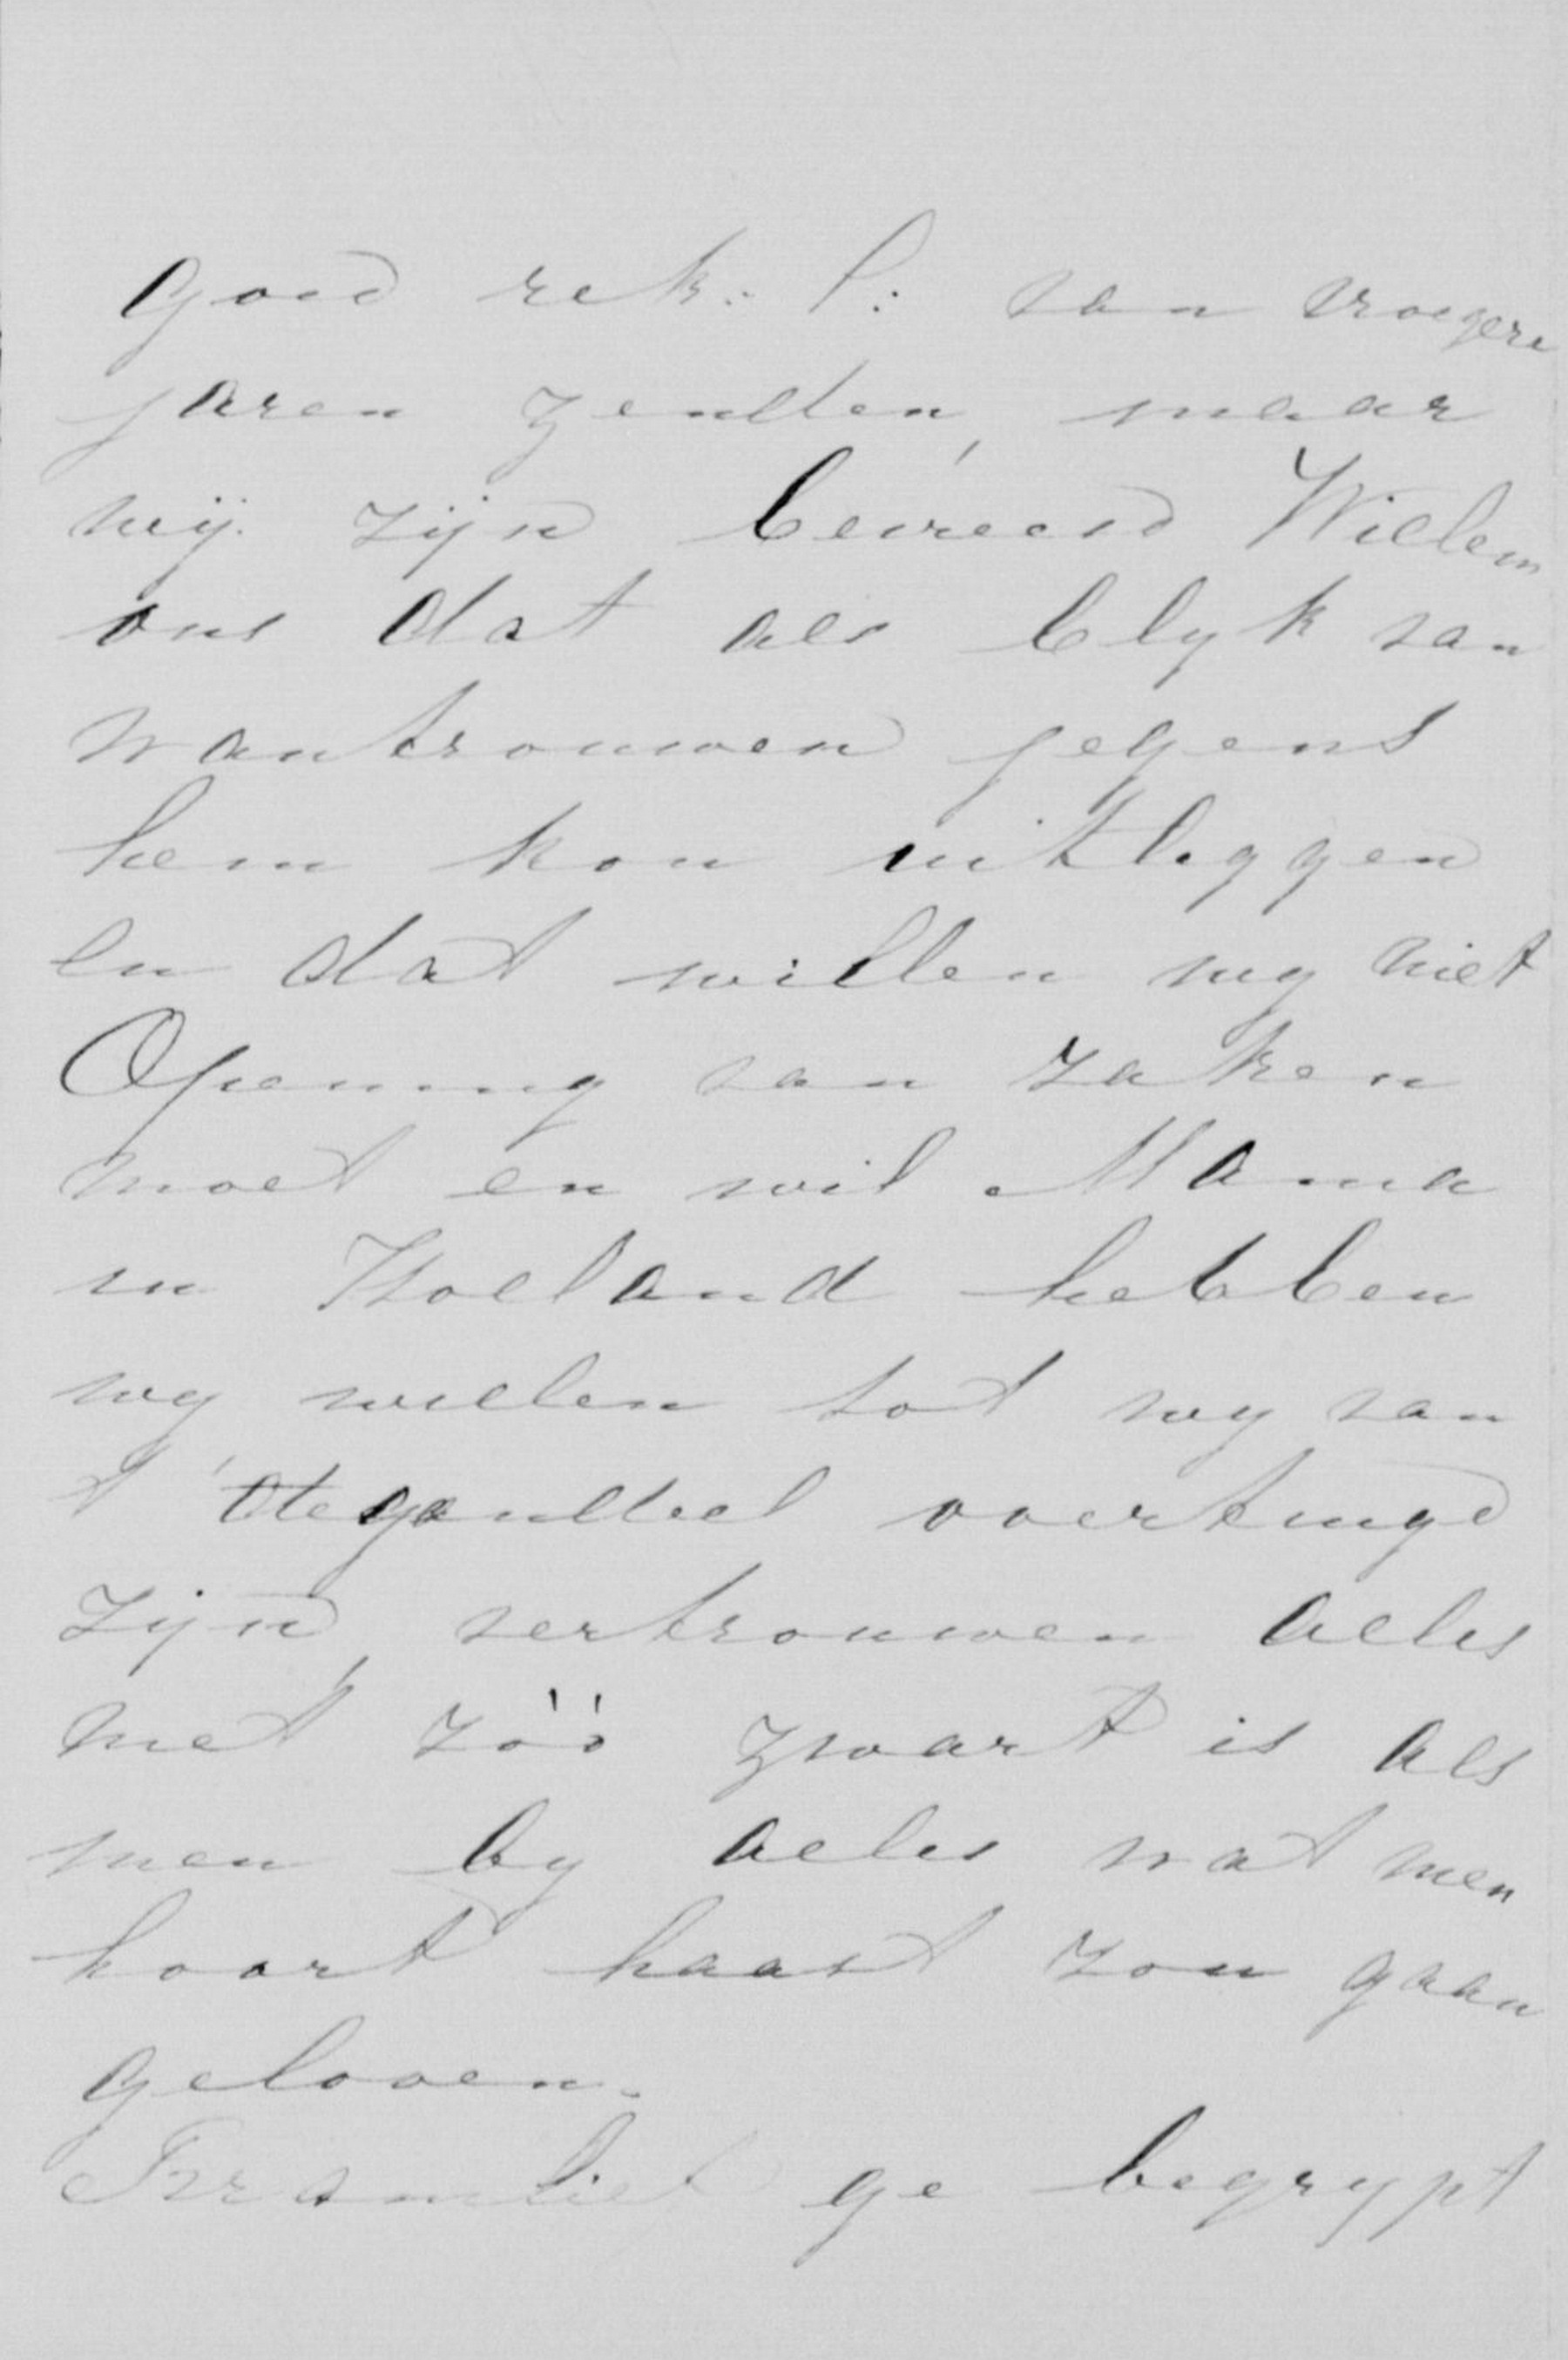 goed rek: C: van vroegere
jaren zenden, maar
wij zijn bevreesd Willem
ons dat als blyk van
wantrouwen jegens
hem kon uitleggen
en dat willen wy niet
Opening van zaken
moet en wil Mama
in Holland hebben
wy willen tot wy van
't tegendeel overtuigd
zijn, vertrouwen alles
niet zóó zwart is als
men by alles wat men
hoort haast zou gaan
gelooven.
ge begrypt